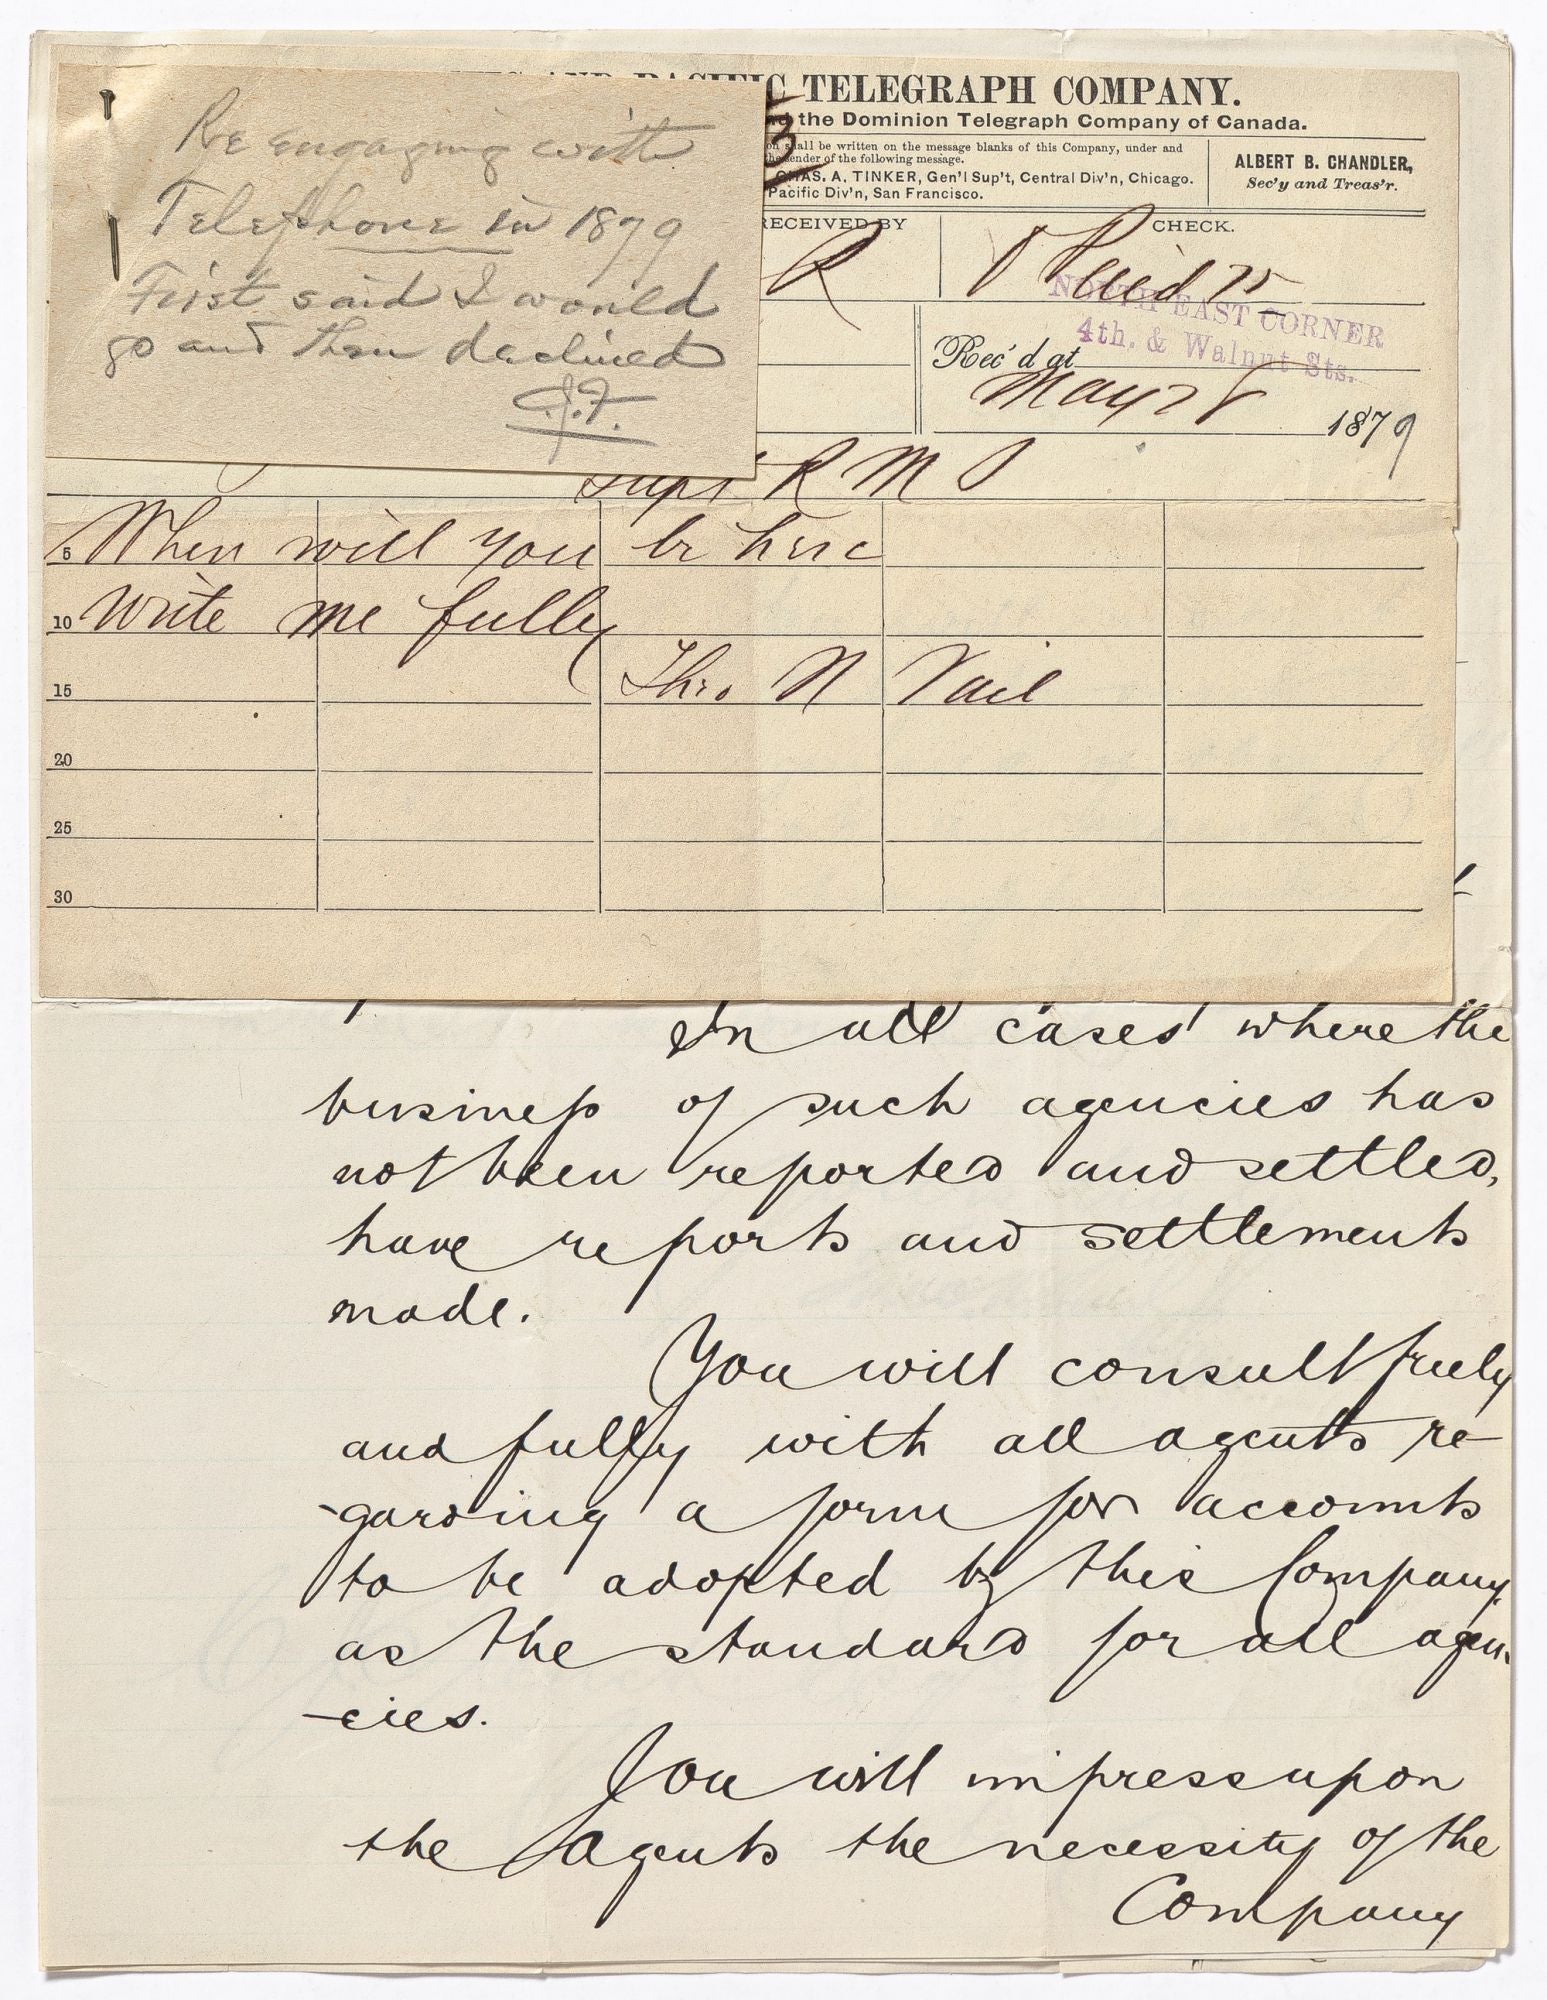 Re engaging with
Telephone in 1879
First said I would
go and then declined
C.J.F.
PACIFIC TELEGRAPH COMPANY.
the Dominion Telegraph Company of Canada.
shall be written on the message blanks of this Company, under and
sender of the following message.
CHAS. A. TINKER, Gen'l Sup't, Central Div'n, Chicago.
Pacific Div'n, San Francisco.
ALBERT B. CHANDLER,
Sec'y and Treas'r.
RECEIVED BY
CHECK.
R
NORTH EAST CORNER
4th. & Walnut Sts.
Rec'd at
May 28 1879
Supt R M S
5 When will you be here
10 Write me fully
15 Theo. N Vail
20
25
30
In all cases where the
business of such agencies has
not been reported and settled,
have reports and settlements
made.
You will consult freely
and fully with all agents re-
-garding a form for accounts
to be adopted by this Company,
as the standard for all agen-
-cies.
You will impress upon
the Agents the necessity of the
Company